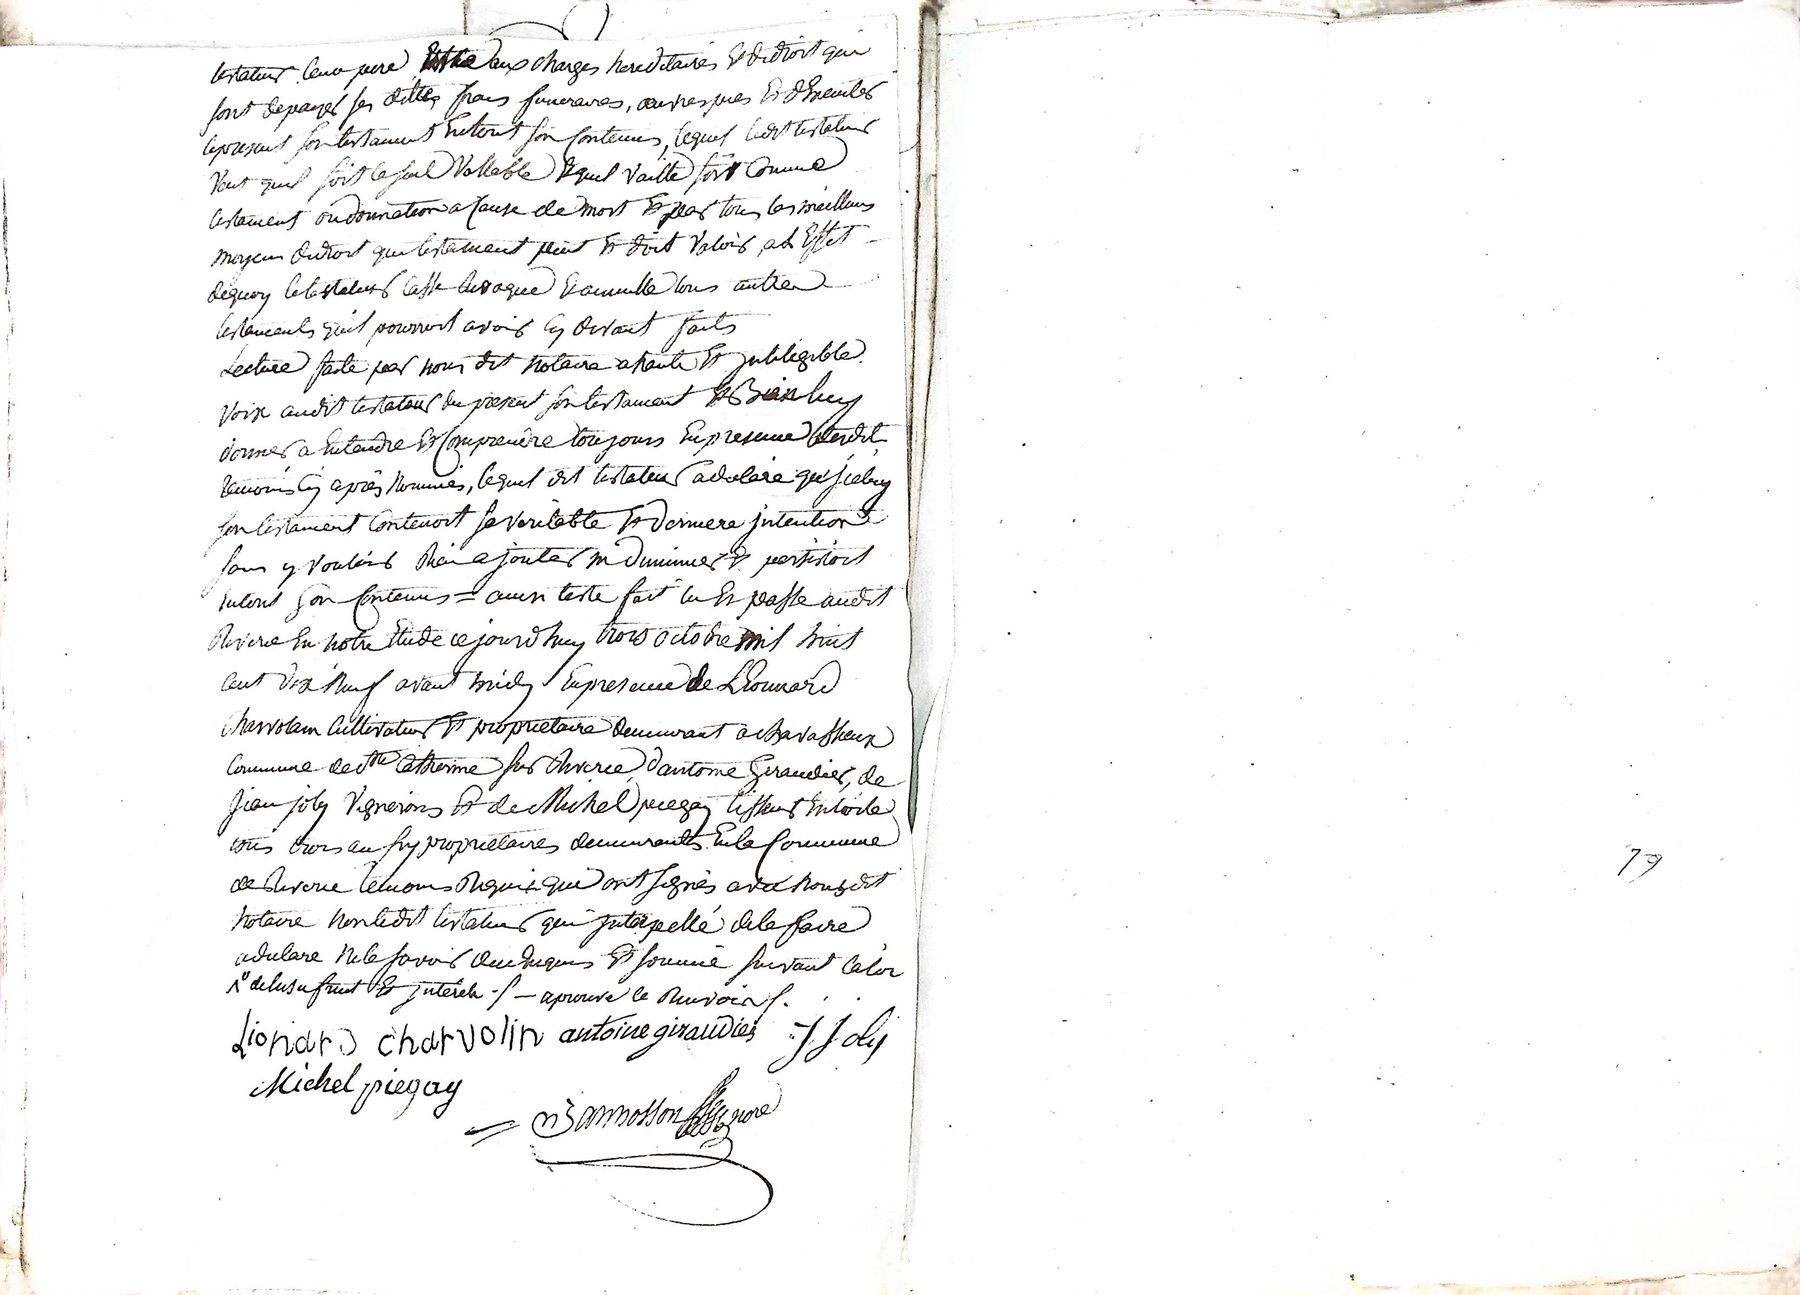 testateur leur pere aux charges hereditaires et de droit qui
sont de payer ses dettes frais funeraires, oeuvres pies et d'executer
le present son testament en tout son contenus, lequel ledit testateur
veut quil soit le seul vallable et quil vaille soit comme
testament ou donnation a cause de mort et par tous les meilleurs
moyens de droit que testament peut et doit valoir, a l'effet
de quoy le testateur casse revoque et annulle tous autres
testaments quil pourroit avoir cy devant faits
Lecture faite par nous dit notaire a haute et inteligible
voix audit testateur du present son testament et bien luy
donner a entendre et comprendre toujours en presence desdits
temoins cy après nommés, lequel dit testateur a declaré que iceluy
son testament contenoit sa veritable et derniere intention
sans y vouloir rien ajouter ni diminuer et persistoit
en tout son contenus = acte fait lu et passé audit
Riverie en notre étude ce jourd'huy trois octobre mil huit
cent dix neuf avant midy en presence de Lionnard
Charvolain cultivateur et proprietaire demeurant a chavassieux
commune de Ste Catherine sur Riverie, d'antoine Giraudier, de
Jean joly vignerons et de Michel piegay tisseur en toile
tous trois aussy proprietaires demeurants en la Commune
de Riverie temoins requis qui ont signés avec nous dit
notaire non ledit testateur qui interpellé de le faire
a declaré ne le savoir de ce requis et sommé suivant la loi
delusufruit et interêts ./. — aprouvé le renvoi ./.
Lionard charvolin antoine giraudier J Joly
Michel piegay
Bannosson nore
79